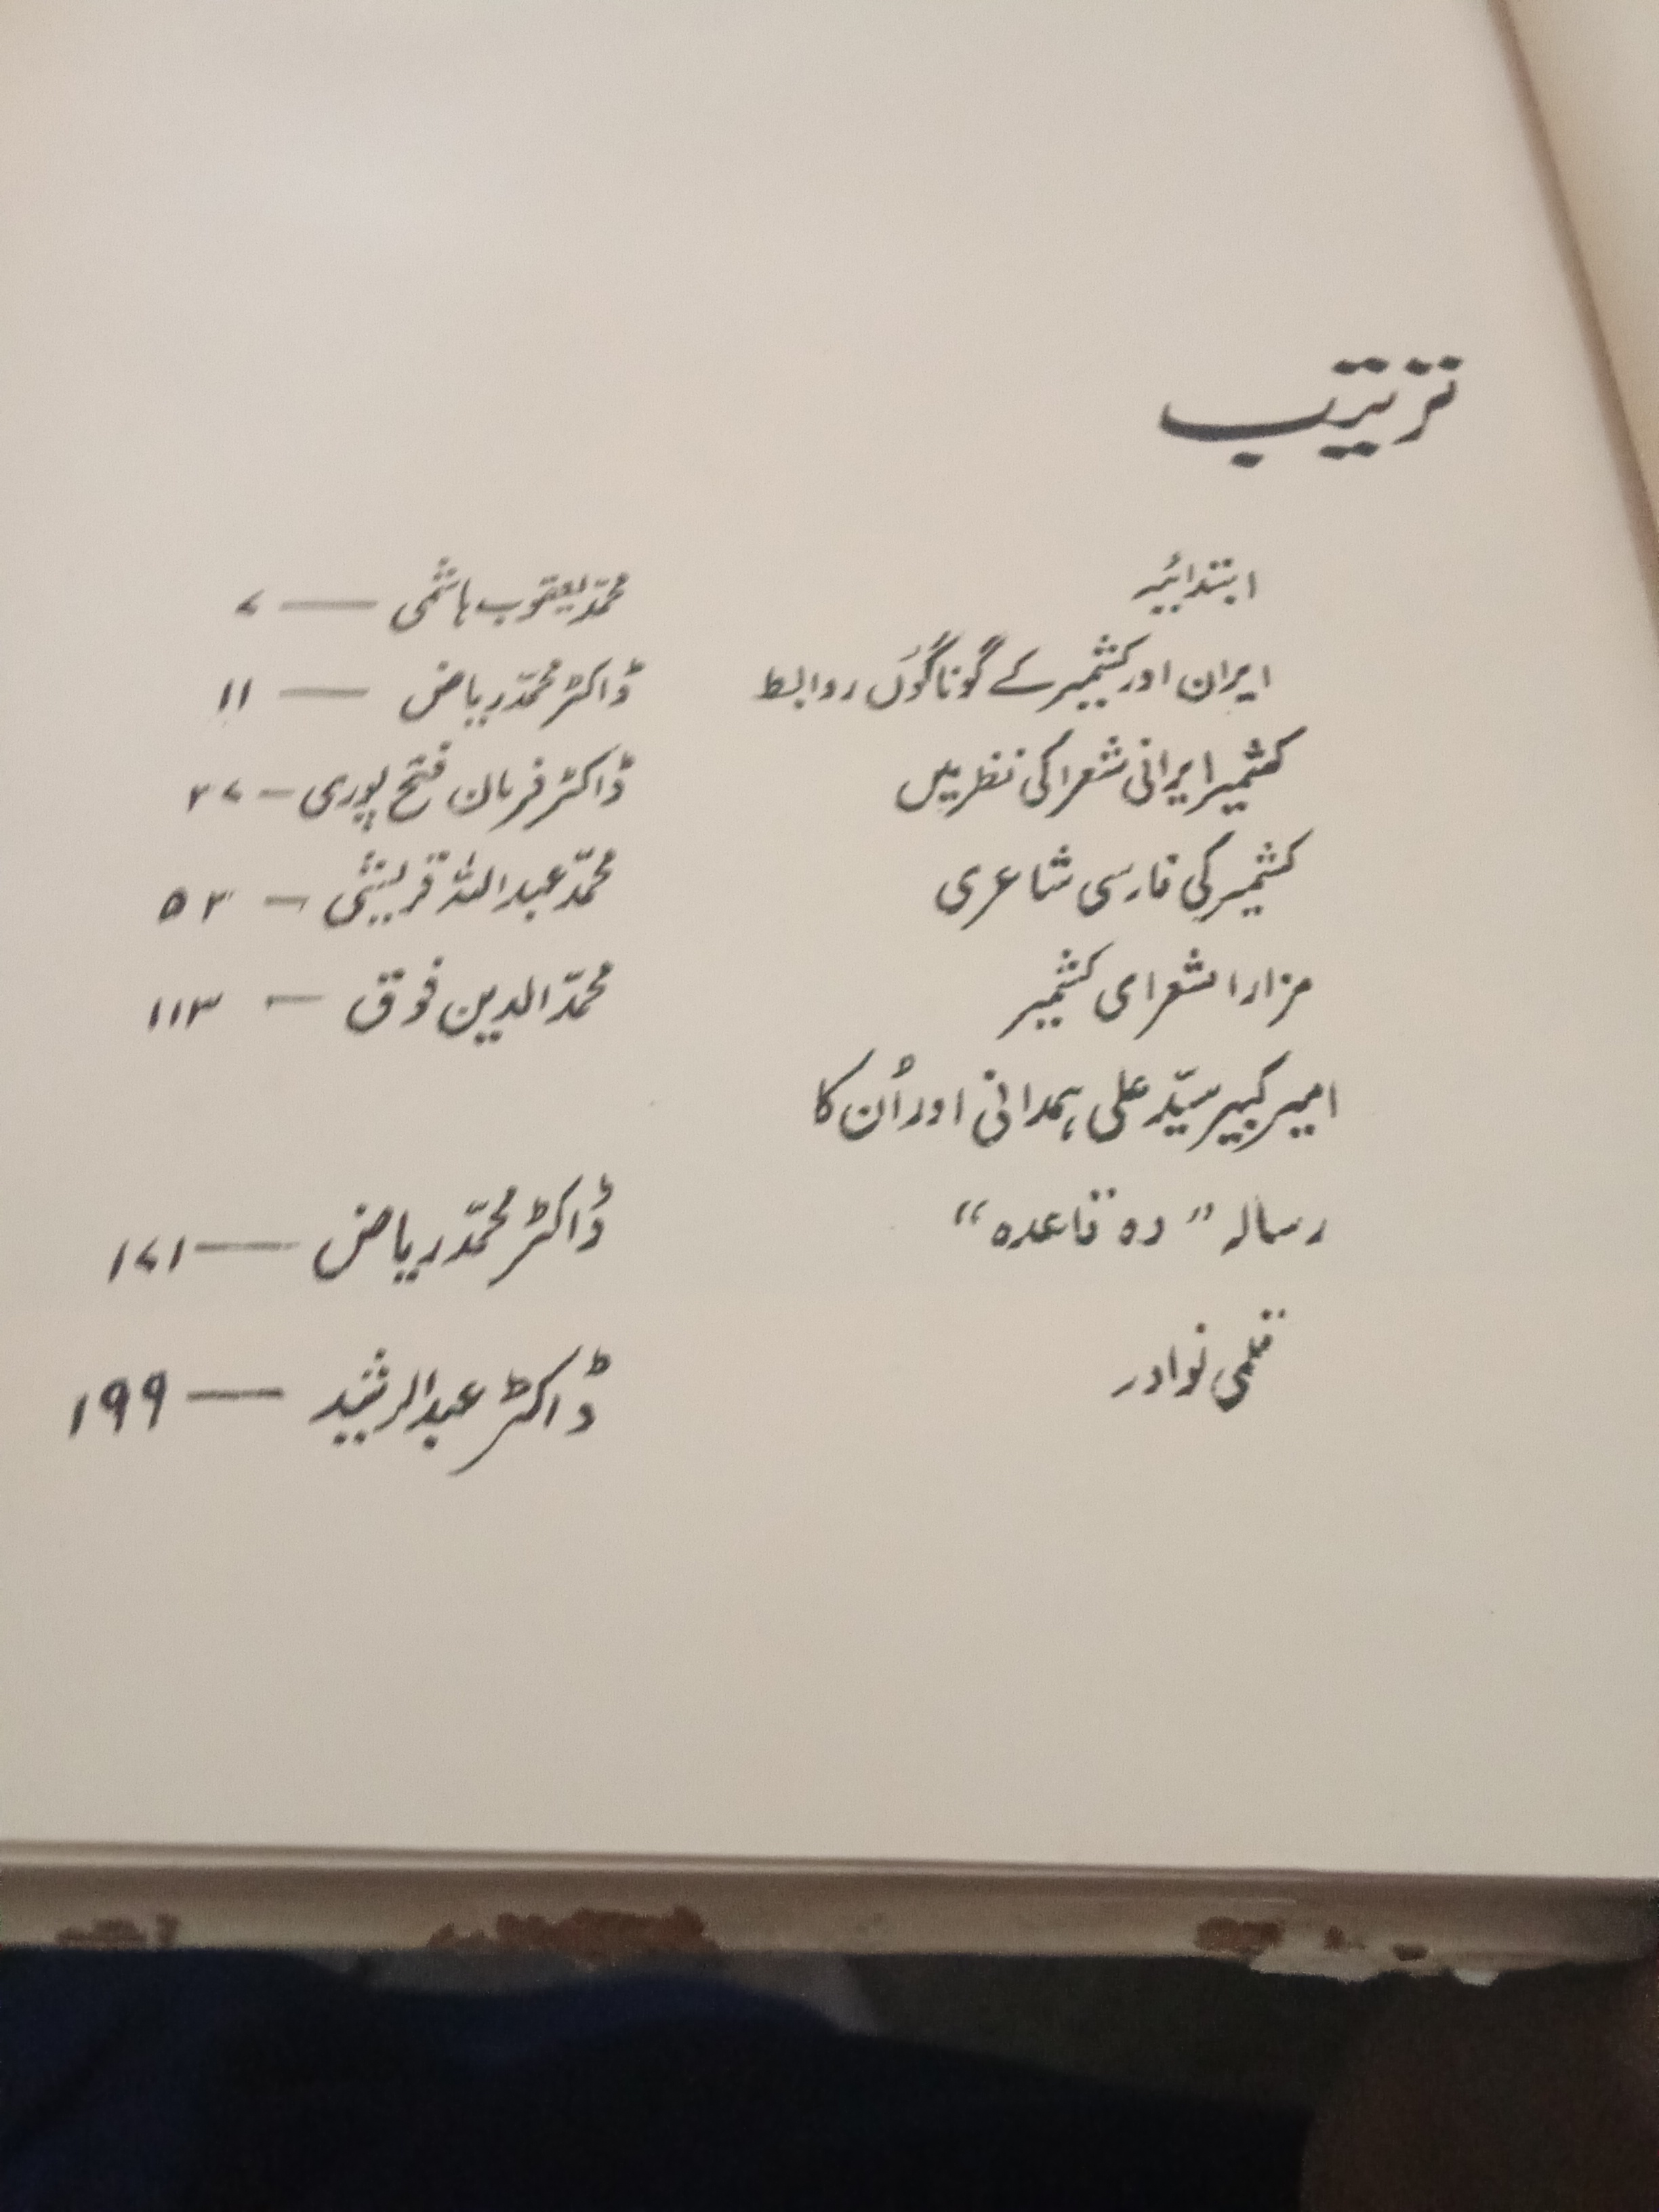 ترتیب
ابتدائیہ محمّد یعقوب ہاشمی — ۷
ایران اور کشمیر کے گوناگوں روابط ڈاکٹر محمّد ریاض — ۱۱
کشمیر ایرانی شعرا کی نظر میں ڈاکٹر فرمان فتح پوری — ۲۷
کشمیر کی فارسی شاعری محمّد عبداللہ قریشی — ۵۳
مزار الشعرای کشمیر محمّد الدین فوق — ۱۱۳
امیر کبیر سیّد علی ہمدانی اور اُن کا
رسالہ ”دہ قاعدہ“ ڈاکٹر محمّد ریاض — ۱۷۱
قلمی نوادر ڈاکٹر عبدالرشید — ۱۹۹